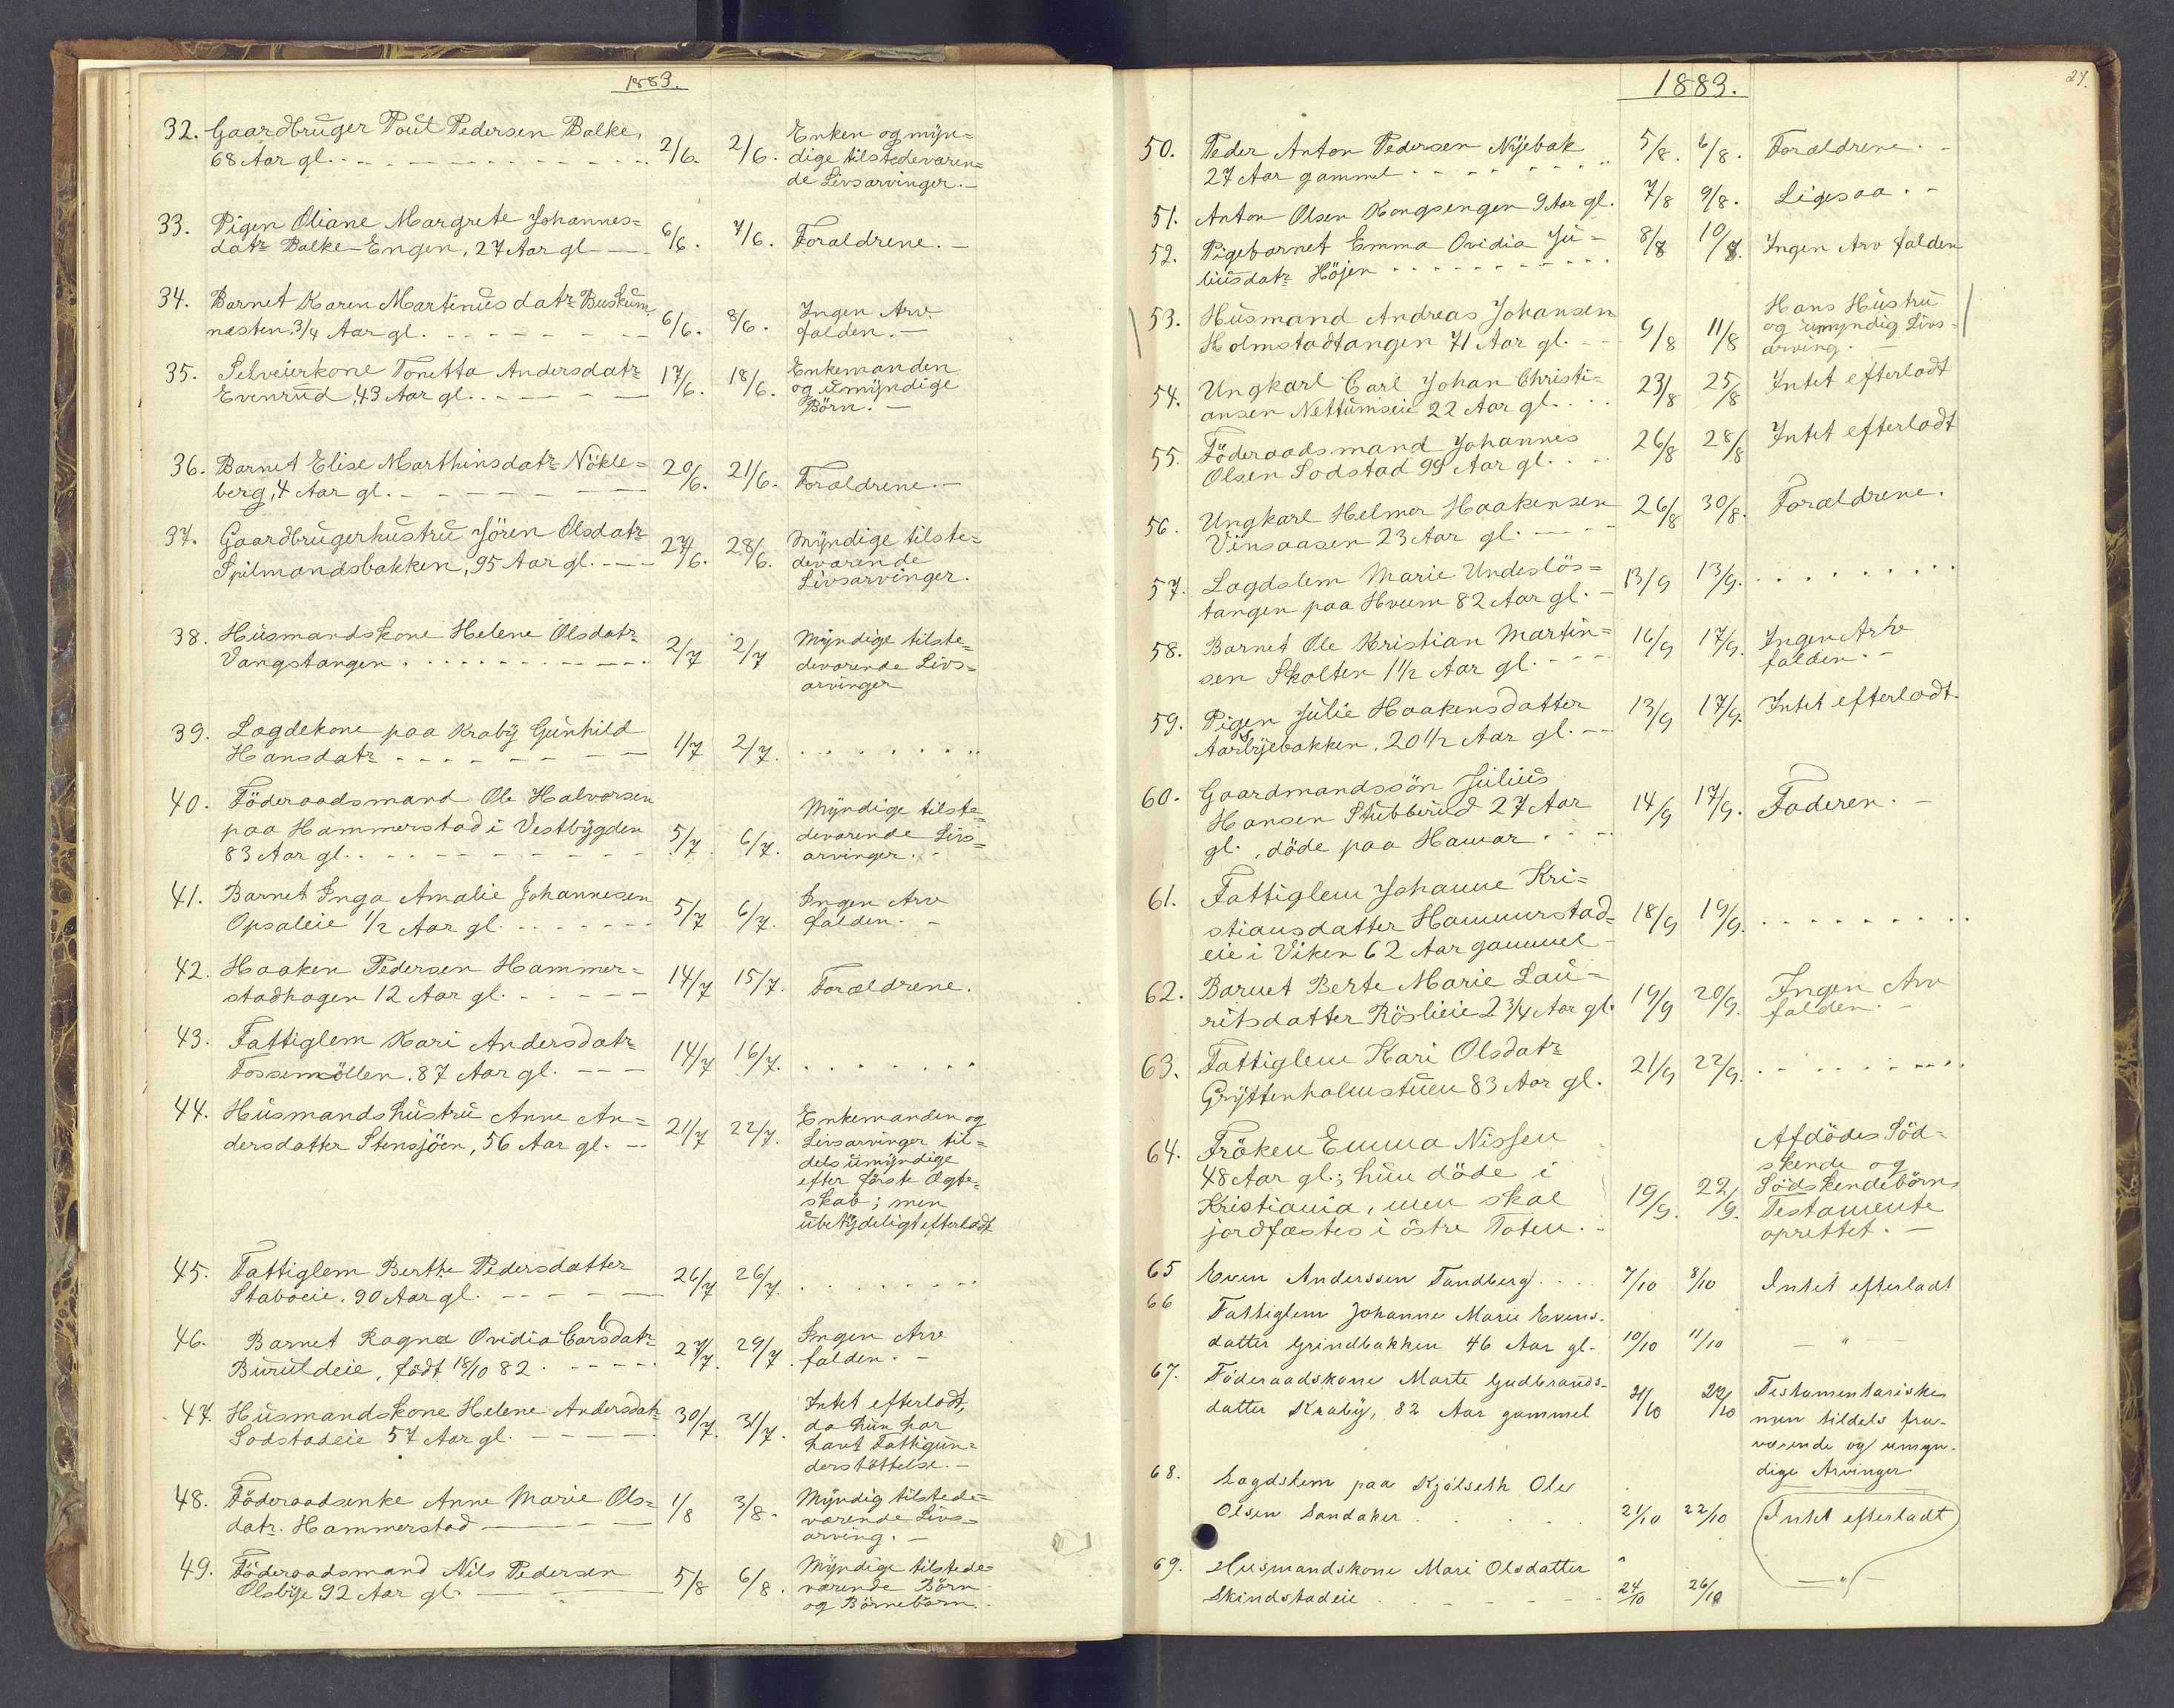 1883.
32. Gaardbruger Poul Pedersen Balke, Enken og myn=
68 Aar gl. 2/6. 2/6. dige tilstedeværen=
de Livsarvinger.—
33. Pigen Oliane Margrete Johannes=
datr Balke-Engen, 27 Aar gl — 6/6. 7/6. Forældrene.—
34. Barnet Karen Martinusdatr Buskum, Ingen Arv
næsten 3/4 Aar gl. 6/6. 8/6. falden.—
35. Selveierkone Tonetta Andersdatr 17/6. 18/6. Enkemanden
Evenrud, 43 Aar gl. og umyndige
Börn.—
36. Barnet Elise Marthinsdatr Nökle= 20/6. 21/6. Forældrene.—
berg, 4 Aar gl.
37. Gaardbrugerhustru Jören Olsdatr 27/6. 28/6. Myndige tilste=
Spilmandsbakken, 95 Aar gl. devärende
Livsarvinger.
38. Husmandskone Helene Olsdatr 2/7 2/7 Myndige tilste=
Vangstangen devärende Livs=
arvinger
39. Lægdekone paa Kraby Gunhild 1/7 2/7.
Hansdatr
40. Föderaadsmand Ole Halvorsen Myndige tilste=
paa Hammerstad i Vestbygden 5/7. 6/7. devärende Livs=
83 Aar gl. arvinger.—
41. Barnet Inga Amalie Johannesen 5/7 6/7. Ingen Arv
Opsaleie 1/2 Aar gl. falden.—
42. Haaken Pedersen Hammer= 14/7 15/7. Forældrene.
stadhagen 12 Aar gl.
43. Fattiglem Kari Andersdatr 14/7 16/7.
Fossemöllen. 87 Aar gl.
44. Husmandshustru Anne An= 21/7 22/7. Enkemanden og
dersdatter Stensjöen, 56 Aar gl. — Livsarvinger til=
dels umyndige
efter förste Ægte=
skab; men
ubetydeligt efterladt
45. Fattiglem Berthe Pedersdatter 26/7 26/7.
Staboeie. 90 Aar gl.
46. Barnet Ragna Ovidia Carlsdatr 27/7. 29/7. Ingen Arv
Buruldeie, födt 18/10 82. falden.—
47. Husmandskone Helene Andersdatr 30/7. 31/7. Intet efterladt,
Sodstadeie 57 Aar gl. da hun har
havt Fattigun=
derstöttelse.—
48. Föderaadsenke Anne Marie Ols= 1/8 3/8. Myndig tilstede=
datr. Hammerstad værende Livs=
arving.—
49. Föderaadsmand Nils Pedersen 5/8 6/8. Myndige tilstede=
Olsbye 92 Aar gl. værende Börn
og Börnebörn.
1883. 27.
50. Peder Anton Pedersen Nyebak 5/8. 6/8. Forældrene.—
27 Aar gammel
51. Anton Olsen Kongsengen 9 Aar gl. 7/8 9/8. Ligesaa.—
52. Pigebarnet Emma Ovidia Ju= 8/8 10/8. Ingen Arv falden
liusdatr Höjen
53. Husmand Andreas Johansen 9/8 11/8 Hans Hustru
Holmstadtangen 71 Aar gl. og umyndig Livs=
arving.—
54. Ungkarl Carl Johan Christi= 23/8 25/8 Intet efterladt
ansen Nettumseie 22 Aar gl.
55. Föderaadsmand Johannes 26/8 28/8 Intet efterladt
Olsen Sodstad 99 Aar gl.
56. Ungkarl Helmer Haakensen 26/8 30/8. Forældrene.
Vinsaasen 23 Aar gl.
57. Lægdslem Marie Undeslös= 13/9 13/9.
tangen paa Hveem 82 Aar gl.
58. Barnet Ole Kristian Martin= 16/9 17/9. Ingen Arv
sen Skolten 1 1/2 Aar gl. falden.—
59. Pigen Julie Haakensdatter 13/9 17/9. Intet efterladt.
Aarbyebakken. 20 1/2 Aar gl.
60. Gaardmandssön Julius
Hansen Stubberud 27 Aar 14/9 17/9. Faderen.—
gl., döde paa Hamar
61. Fattiglem Johanne Kri=
stiansdatter Hammerstad= 18/9 19/9.
eie i Viken 62 Aar gammel
62. Barnet Berte Marie Lau= 19/9 20/9. Ingen Arv
ritsdatter Röslieie 2 3/4 Aar gl. falden.—
63. Fattiglem Kari Olsdatr 21/9 22/9.
Gryttenholmstuen 83 Aar gl.
64. Fröken Emma Nissen Afdödes Söd=
48 Aar gl.; hun döde i skende og
Kristiania, men skal 19/9. 22/9. Södskendebörn,
jordfæstes i östre Toten. Testamente
oprettet.—
65 Even Anderssen Tandberg. 7/10 8/10 Intet efterladt
66 Fattiglem Johanne Marie Evens-
datter Grindbakken 46 Aar gl. 10/10 11/10 — " —
67. Föderaadskone Marte Gudbrands- 21/10 22/10 Testamentariske
datter Kraby, 82 Aar gammel men tildels fra-
værende og umyn-
dige Arvinger
68. Lægdslem paa Kjölseth Ole
Olsen Sandaker 21/10 22/10 Intet efterladt
69. Husmandskone Mari Olsdatter
Skindstadeie 24/10 26/10 — " —